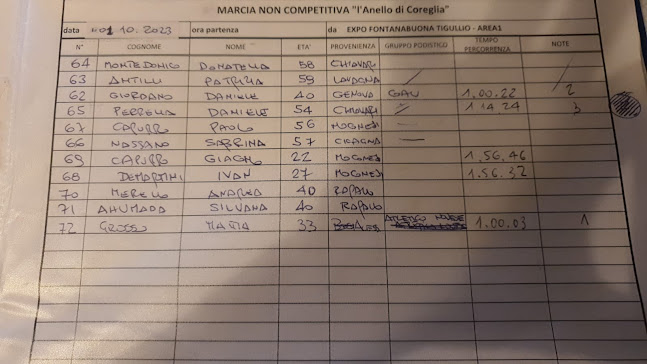 MARCIA NON COMPETITIVA "l'Anello di Coreglia"
data 01 10. 2023 ora partenza da EXPO FONTANABUONA TIGULLIO - AREA1
N° COGNOME NOME ETA' PROVENIENZA GRUPPO PODISTICO TEMPO PERCORRENZA NOTE
64 MONTEDONICO DONATELLA 58 CHIAVARI
63 PATRIZIA 59 LAVAGNA
62 GIORDANO DANIELE 40 GENOVA GAU 1.00.22 2
65 DANIELE 54 CHIAVARI 1 14 24 3
67 CAPURRO PAOLO 56
66 NASSANO SABRINA 57 CICAGNA
69 CAPURRO 22 1.56.46
68 DEMARTINI IVAN 27 1.56.32
70 MERELLO ANDREA 40 RAPALLO
71 AHUMADA SILVANA 40 RAPALLO
72 GROSSO 33 1.00.03 1